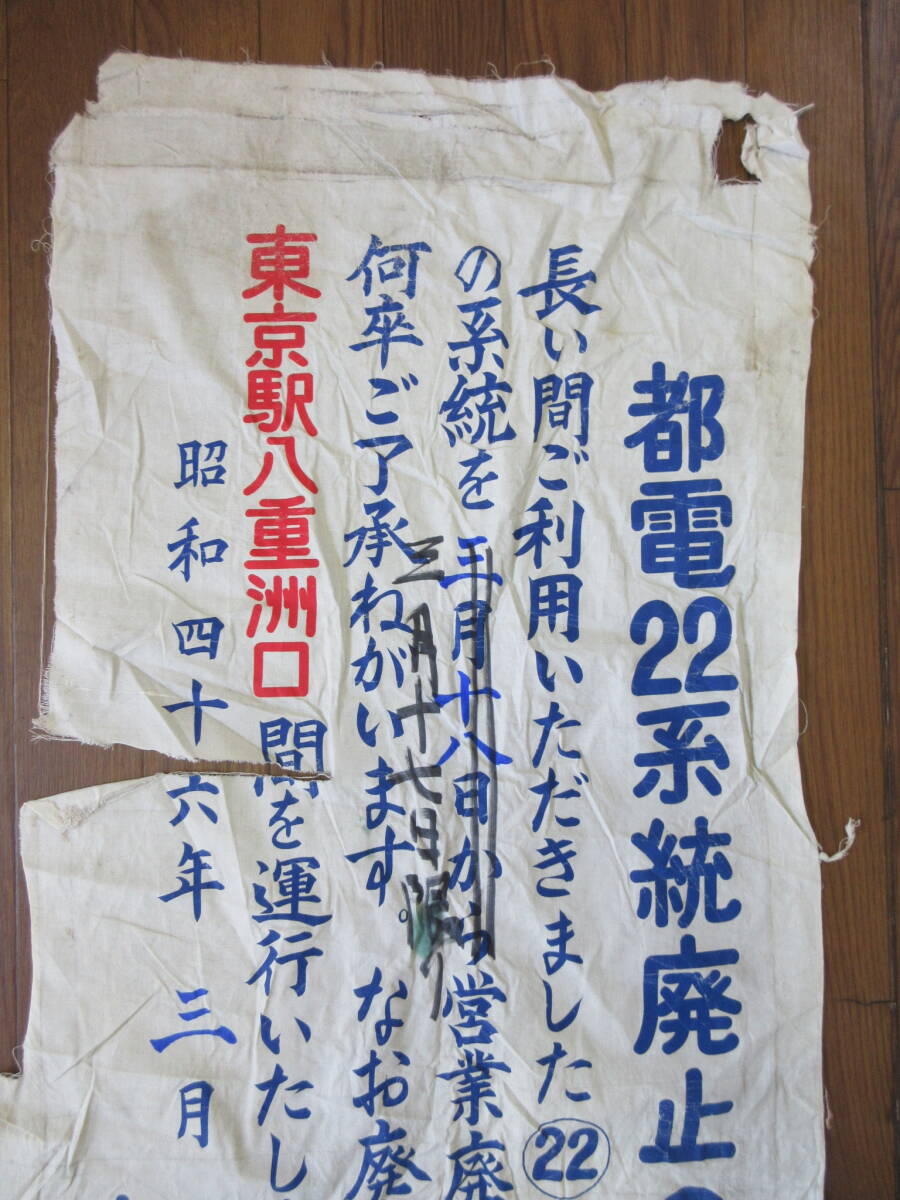 都電22系統廃止
長い間ご利用いただきました㉒
の系統を三月十八日から営業廃
三月十七日限り
何卒ご了承ねがいます。なお廃
東京駅八重洲口間を運行いたし
昭和四十六年三月